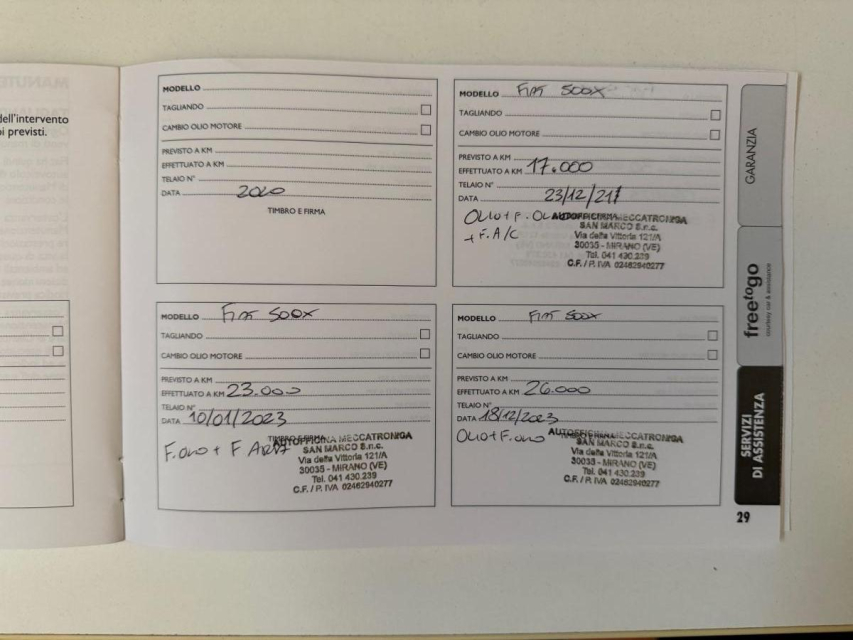 dell'intervento
pi previsti.
MODELLO
TAGLIANDO
CAMBIO OLIO MOTORE
PREVISTO A KM
EFFETTUATO A KM
TELAIO N°
DATA 2020
TIMBRO E FIRMA
MODELLO FIAT 500X
TAGLIANDO
CAMBIO OLIO MOTORE
PREVISTO A KM
EFFETTUATO A KM 17.000
TELAIO N°
DATA 23/12/21
OLIO + F. OL
+ F. A/C
AUTOFFICINA MECCATRONICA
SAN MARCO S.n.c.
Via della Vittoria 121/A
30035 - MIRANO (VE)
Tel. 041 430.239
C.F. / P. IVA 02462940277
MODELLO FIAT 500X
TAGLIANDO
CAMBIO OLIO MOTORE
PREVISTO A KM
EFFETTUATO A KM 23.000
TELAIO N°
DATA 10/01/2023
F. OLIO + F ARIA
AUTOFFICINA MECCATRONICA
SAN MARCO S.n.c.
Via della Vittoria 121/A
30035 - MIRANO (VE)
Tel. 041 430.239
C.F. / P. IVA 02462940277
MODELLO FIAT 500X
TAGLIANDO
CAMBIO OLIO MOTORE
PREVISTO A KM
EFFETTUATO A KM 26.000
TELAIO N°
DATA 18/12/2023
OLIO + F. OLIO
AUTOFFICINA MECCATRONICA
SAN MARCO S.n.c.
Via della Vittoria 121/A
30035 - MIRANO (VE)
Tel. 041 430.239
C.F. / P. IVA 02462940277
GARANZIA
freetogo
courtesy car & assistance
SERVIZI
DI ASSISTENZA
29